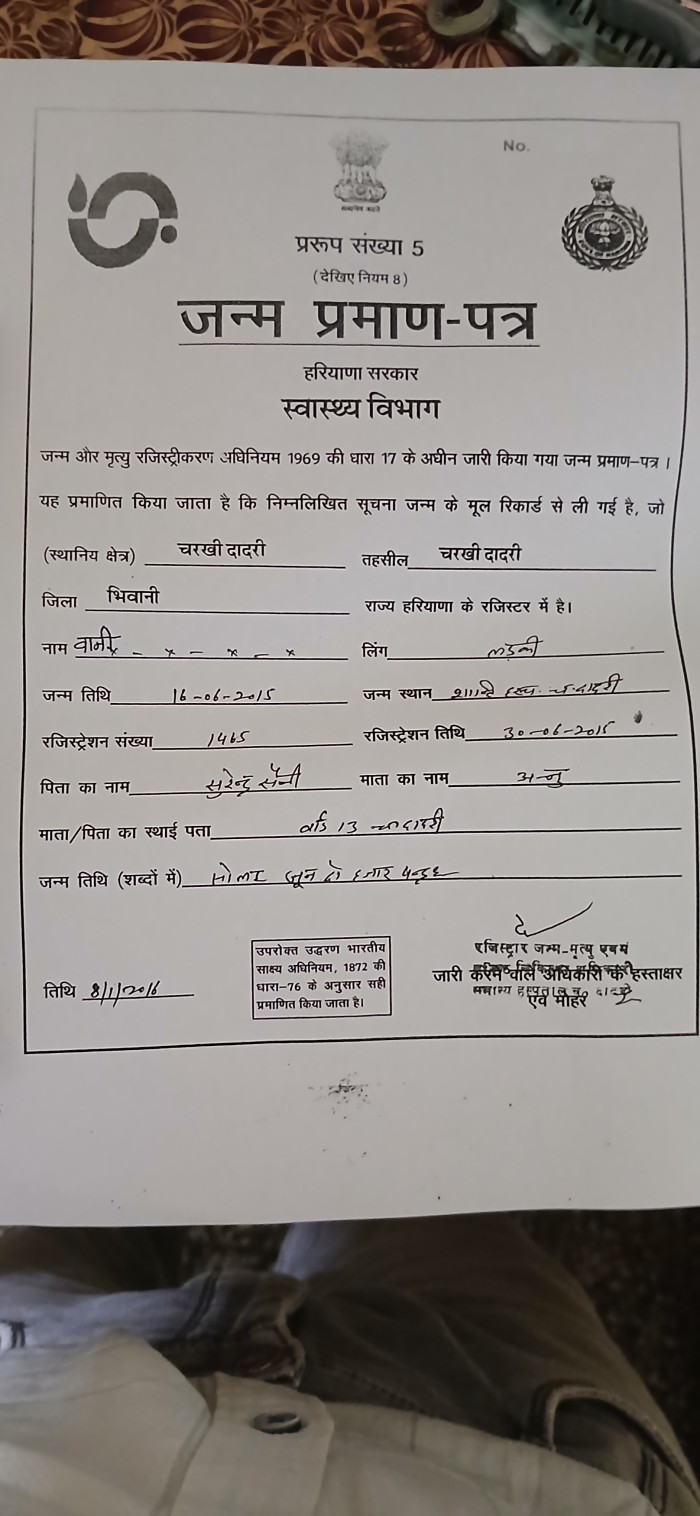 No.
सत्यमेव जयते
प्ररूप संख्या 5
(देखिए नियम 8)
जन्म प्रमाण-पत्र
हरियाणा सरकार
स्वास्थ्य विभाग
जन्म और मृत्यु रजिस्ट्रीकरण अधिनियम 1969 की धारा 17 के अधीन जारी किया गया जन्म प्रमाण-पत्र ।
यह प्रमाणित किया जाता है कि निम्नलिखित सूचना जन्म के मूल रिकार्ड से ली गई है, जो
(स्थानिय क्षेत्र) चरखी दादरी तहसील चरखी दादरी
जिला भिवानी राज्य हरियाणा के रजिस्टर में है।
नाम वानी - x - x - x लिंग लड़की
जन्म तिथि 16-06-2015 जन्म स्थान दादरी
रजिस्ट्रेशन संख्या 1465 रजिस्ट्रेशन तिथि 30-06-2015
पिता का नाम सुरेन्द्र सैनी माता का नाम अनु
माता/पिता का स्थाई पता वार्ड 13 च. दादरी
जन्म तिथि (शब्दों में) सोलह जून दो हजार पन्द्रह
उपरोक्त उद्धरण भारतीय
साक्ष्य अधिनियम, 1872 की
धारा-76 के अनुसार सही
प्रमाणित किया जाता है।
तिथि 8/1/2016
रजिस्ट्रार जन्म-मृत्यु एवम
जारी करने वाले अधिकारी के हस्ताक्षर
एवं मोहर